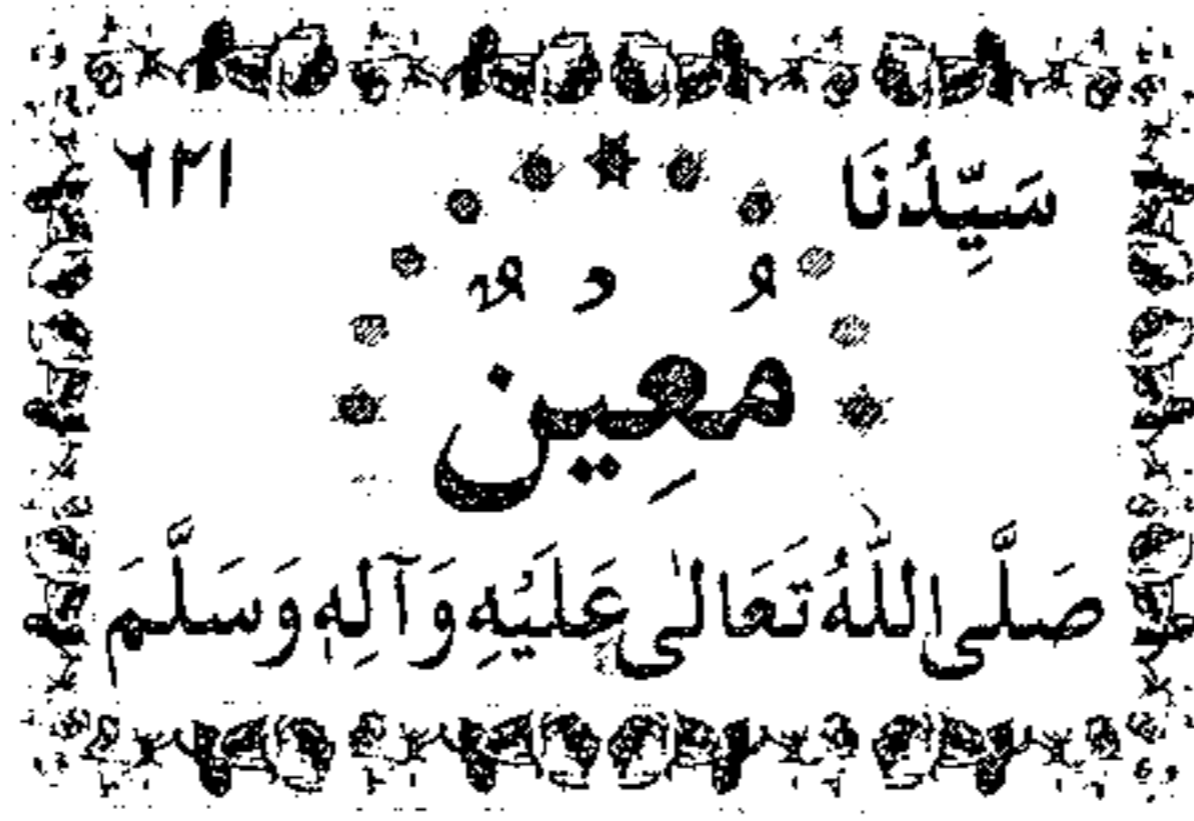 سَيِّدُنَا ٦٢١
مُعِينٌ
صَلَّى اللّٰهُ تَعَالٰى عَلَيْهِ وَآلِهٖ وَسَلَّمَ